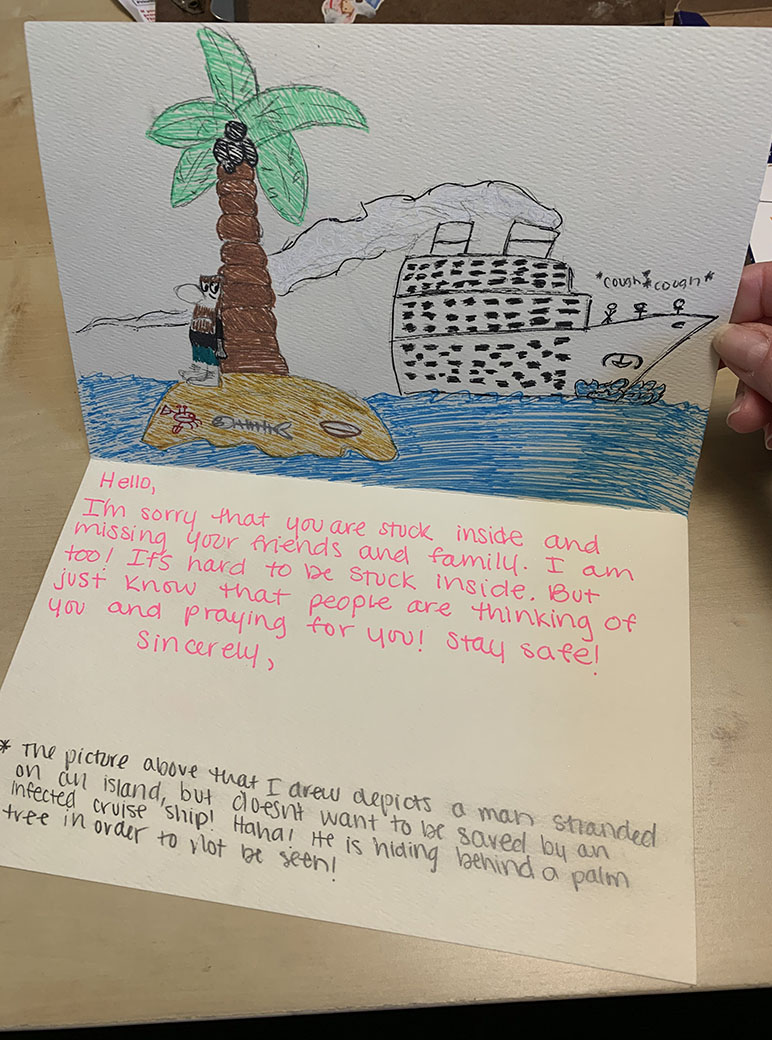 *cough* *cough*
Hello,
I'm sorry that you are stuck inside and
missing your friends and family. I am
too! It's hard to be stuck inside. But
just know that people are thinking of
you and praying for you! Stay safe!
Sincerely,
* The picture above that I drew depicts a man stranded
on an island, but doesnt want to be saved by an
infected cruise ship! Haha! He is hiding behind a palm
tree in order to not be seen!